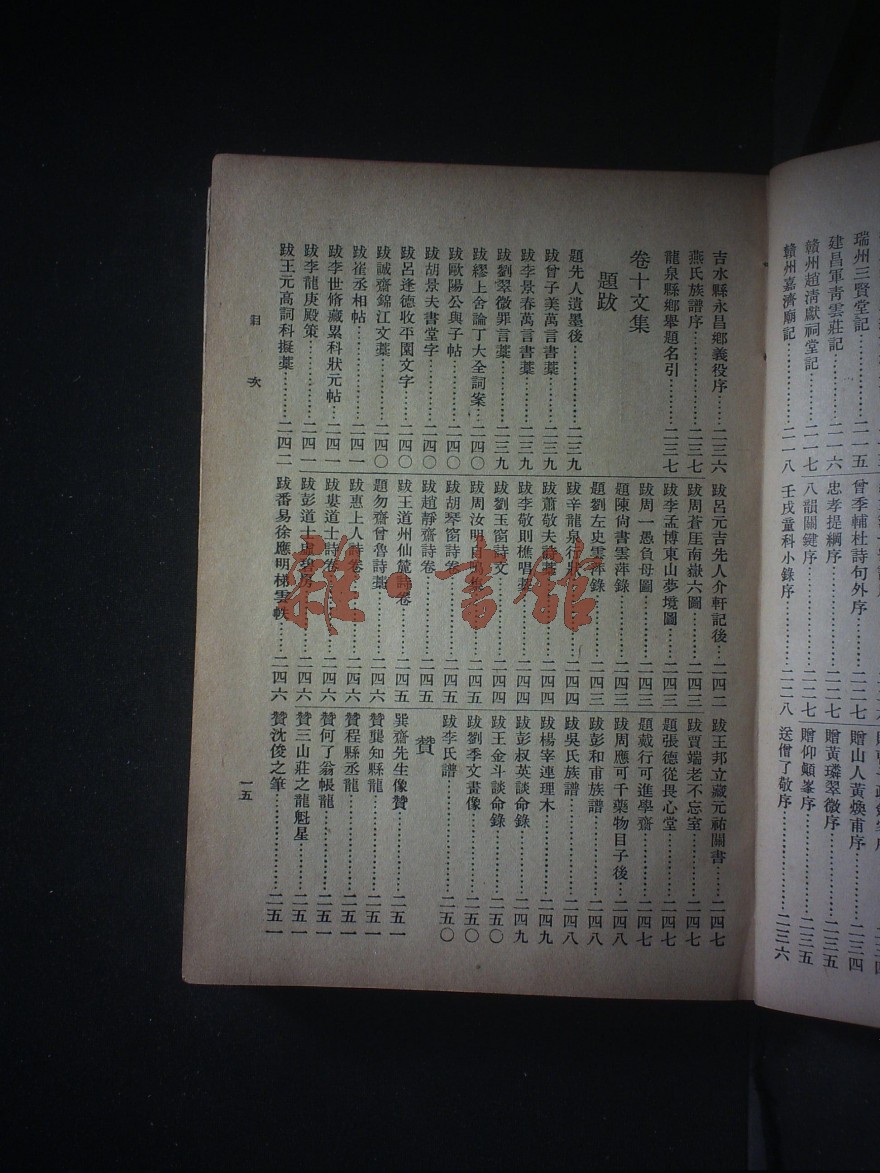 瑞州三賢堂記……………二一五
建昌軍青雲莊記…………二一六
贛州趙清獻祠堂記………二一七
贛州嘉濟廟記……………二一八
曾季輔杜詩句外序………二二七
忠孝提綱序………………二二七
八韻關鍵序………………二二七
壬戌童科小錄序…………二二八
贈山人黃煥甫序…………二三四
贈黃璘翠微序……………二三五
贈仰顛峯序………………二三五
送僧了敬序………………二三六
吉水縣永昌鄉義役序……二三六
燕氏族譜序………………二三七
龍泉縣鄉舉題名引………二三七
卷十文集
題跋
題先人遺墨後……………二三九
跋曾子美萬言書藁………二三九
跋李景春萬言書藁………二三九
跋劉翠微罪言藁…………二三九
跋繆上舍論丁大全詞案…二四〇
跋歐陽公與子帖…………二四〇
跋胡景夫書堂字…………二四〇
跋呂逢德收平園文字……二四〇
跋誠齋錦江文藁…………二四〇
跋崔丞相帖………………二四一
跋李世脩藏累科狀元帖…二四一
跋李龍庚殿策……………二四一
跋王元高詞科擬藁………二四二
跋呂元吉先人介軒記後…二四二
跋周蒼厓南嶽六圖………二四三
跋李孟博東山夢境圖……二四三
跋周一愚負母圖…………二四三
題陳尙書雲萍錄…………二四三
題劉左史雲萍錄…………二四三
跋辛龍泉行狀……………二四四
跋蕭敬夫詩藁……………二四四
跋李敬則樵唱藁…………二四四
跋劉玉窗詩文……………二四四
跋周汝明自鳴集…………二四五
跋胡琴窗詩卷……………二四五
跋趙靜齋詩卷……………二四五
跋王道州仙麓詩卷………二四五
題勿齋曾魯詩藁…………二四六
跋惠上人詩卷……………二四六
跋婁道士詩卷……………二四六
跋彭道士虛碧房…………二四六
跋番易徐應明梯雲帙……二四六
跋王邦立藏元祐關書……二四七
跋賈端老不忘室…………二四七
題張德從畏心堂…………二四七
題戴行可進學齋…………二四七
跋周應可千藥物目子後…二四八
跋彭和甫族譜……………二四八
跋吳氏族譜………………二四八
跋楊宰連理木……………二四九
跋彭叔英談命錄…………二四九
跋王金斗談命錄…………二五〇
跋劉季文畫像……………二五〇
跋李氏譜…………………二五〇
贊
巽齋先生像贊……………二五一
贊龔知縣龍………………二五一
贊程縣丞龍………………二五一
贊何了翁帳龍……………二五一
贊三山莊之龍魁星………二五一
贊沈俊之筆………………二五一
目次
一五
雜·書館